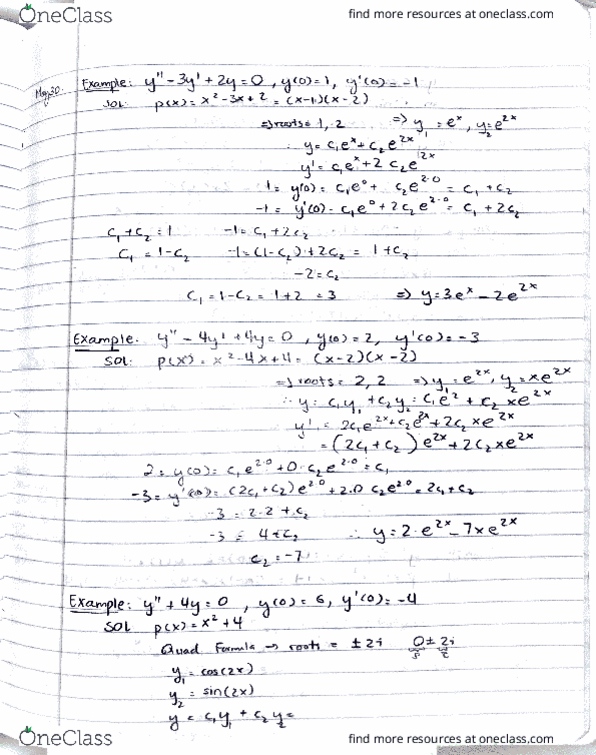 OneClass
find more resources at oneclass.com
May 30
Example: y" - 3y' + 2y = 0 , y(0) = 1, y'(0) = -1
sol: p(x) = x² - 3x + 2 = (x-1)(x-2)
⇒ roots = 1, 2 ⇒ y₁ = eˣ, y₂ = e²ˣ
∴ y = c₁eˣ + c₂e²ˣ
y' = c₁eˣ + 2c₂e²ˣ
1 = y(0) = c₁e⁰ + c₂e²·⁰ = c₁ + c₂
-1 = y'(0) = c₁e⁰ + 2c₂e²·⁰ = c₁ + 2c₂
c₁ + c₂ = 1 -1 = c₁ + 2c₂
c₁ = 1 - c₂ -1 = (1 - c₂) + 2c₂ = 1 + c₂
-2 = c₂
c₁ = 1 - c₂ = 1 + 2 = 3 ⇒ y = 3eˣ - 2e²ˣ
Example. y" - 4y' + 4y = 0 , y(0) = 2, y'(0) = -3
sol: p(x) = x² - 4x + 4 = (x-2)(x-2)
⇒ roots = 2, 2 ⇒ y₁ = e²ˣ, y₂ = xe²ˣ
∴ y = c₁y₁ + c₂y₂ = c₁e² + c₂xe²ˣ
y' = 2c₁e²ˣ + c₂e²ˣ + 2c₂xe²ˣ
= (2c₁ + c₂) e²ˣ + 2c₂xe²ˣ
2 = y(0) = c₁e²·⁰ + 0·c₂e²·⁰ = c₁
-3 = y'(0) = (2c₁ + c₂)e²·⁰ + 2·0 c₂e²·⁰ = 2c₁ + c₂
-3 = 2·2 + c₂
-3 = 4 + c₂ ∴ y = 2·e²ˣ - 7xe²ˣ
c₂ = -7
Example: y" + 4y = 0 , y(0) = 6, y'(0) = -4
sol p(x) = x² + 4
Quad Formula → roots = ±2i 0 ± 2i
y₁ = cos(2x)
y₂ = sin(2x)
y = c₁y₁ + c₂y₂ =
OneClass
find more resources at oneclass.com